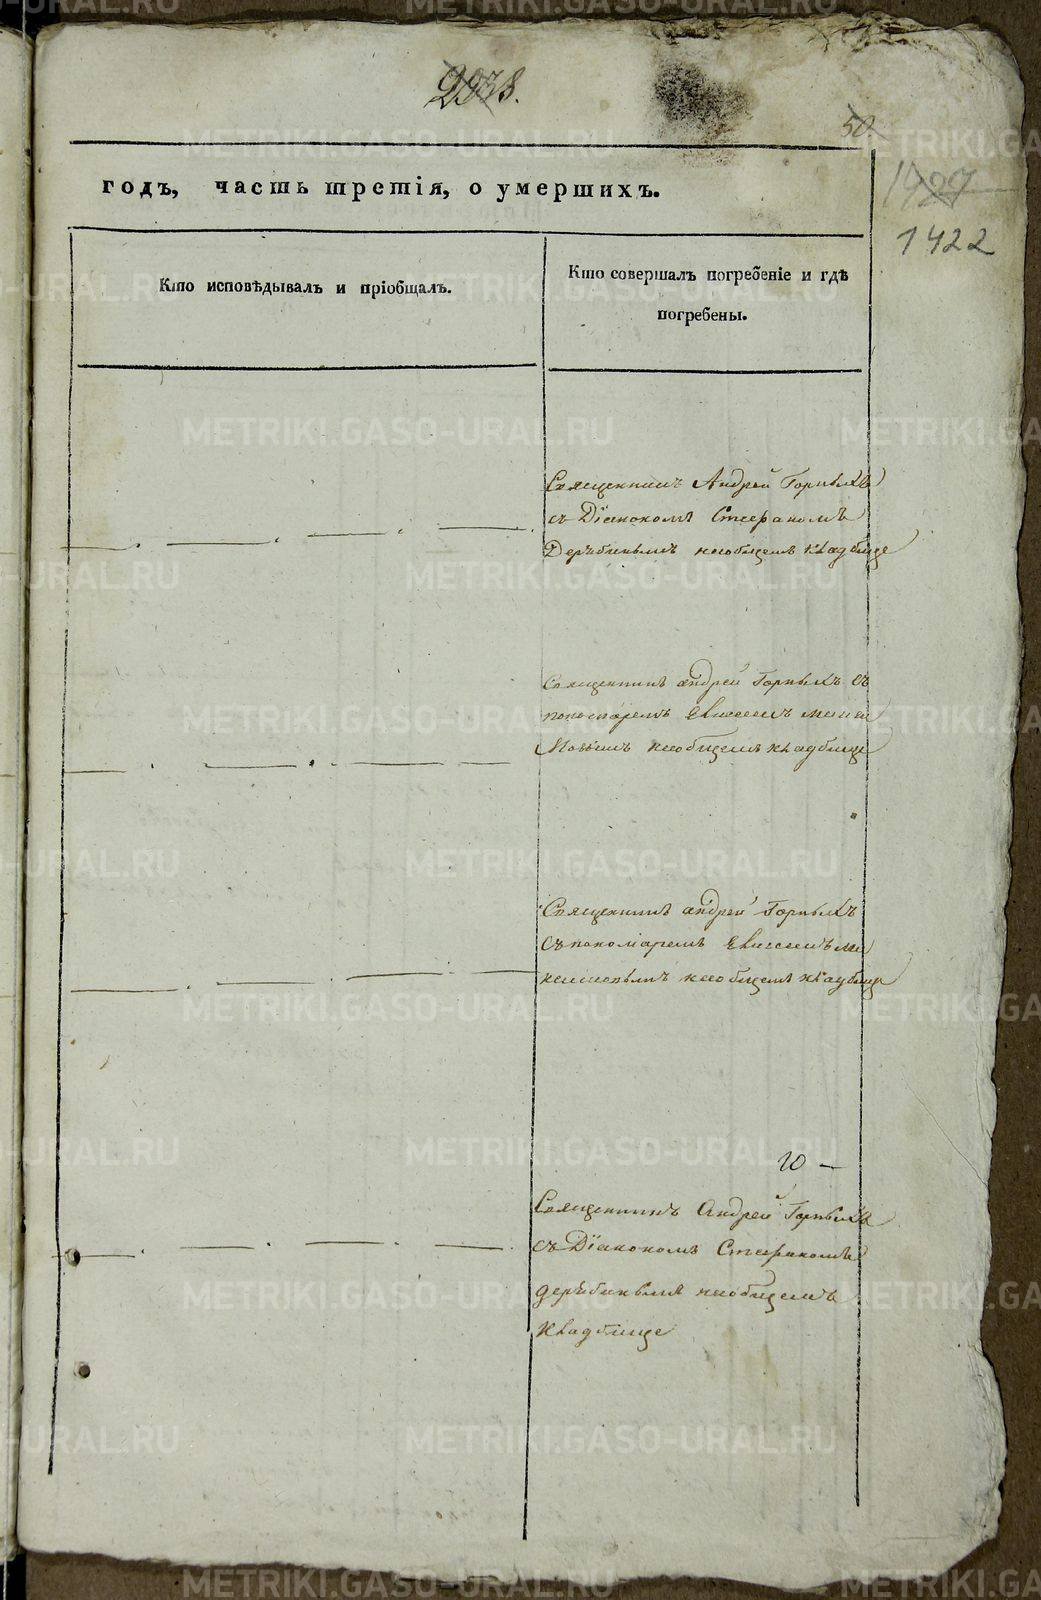 2938.
50
1427
1422
годъ, часть третія, о умершихъ.
Кто исповѣдывалъ и пріобщалъ.
Кто совершалъ погребеніе и гдѣ
погребены.
Священникъ Андрей Горныхъ
съ Діакономъ Стефаномъ
Дерябинымъ наобщемъ кладбище
Священникъ андрей Горныхъ съ
пономаремъ Елисеемъ
наобщемъ кладбище
Священникъ андрей Горныхъ
съ пономаремъ Елисеемъ
наобщемъ кладбище
10 —
Священникъ Андрей Горныхъ
съ Діакономъ Стефаномъ
дерябинымъ наобщемъ
кладбище
METRIKI.GASO-URAL.RU